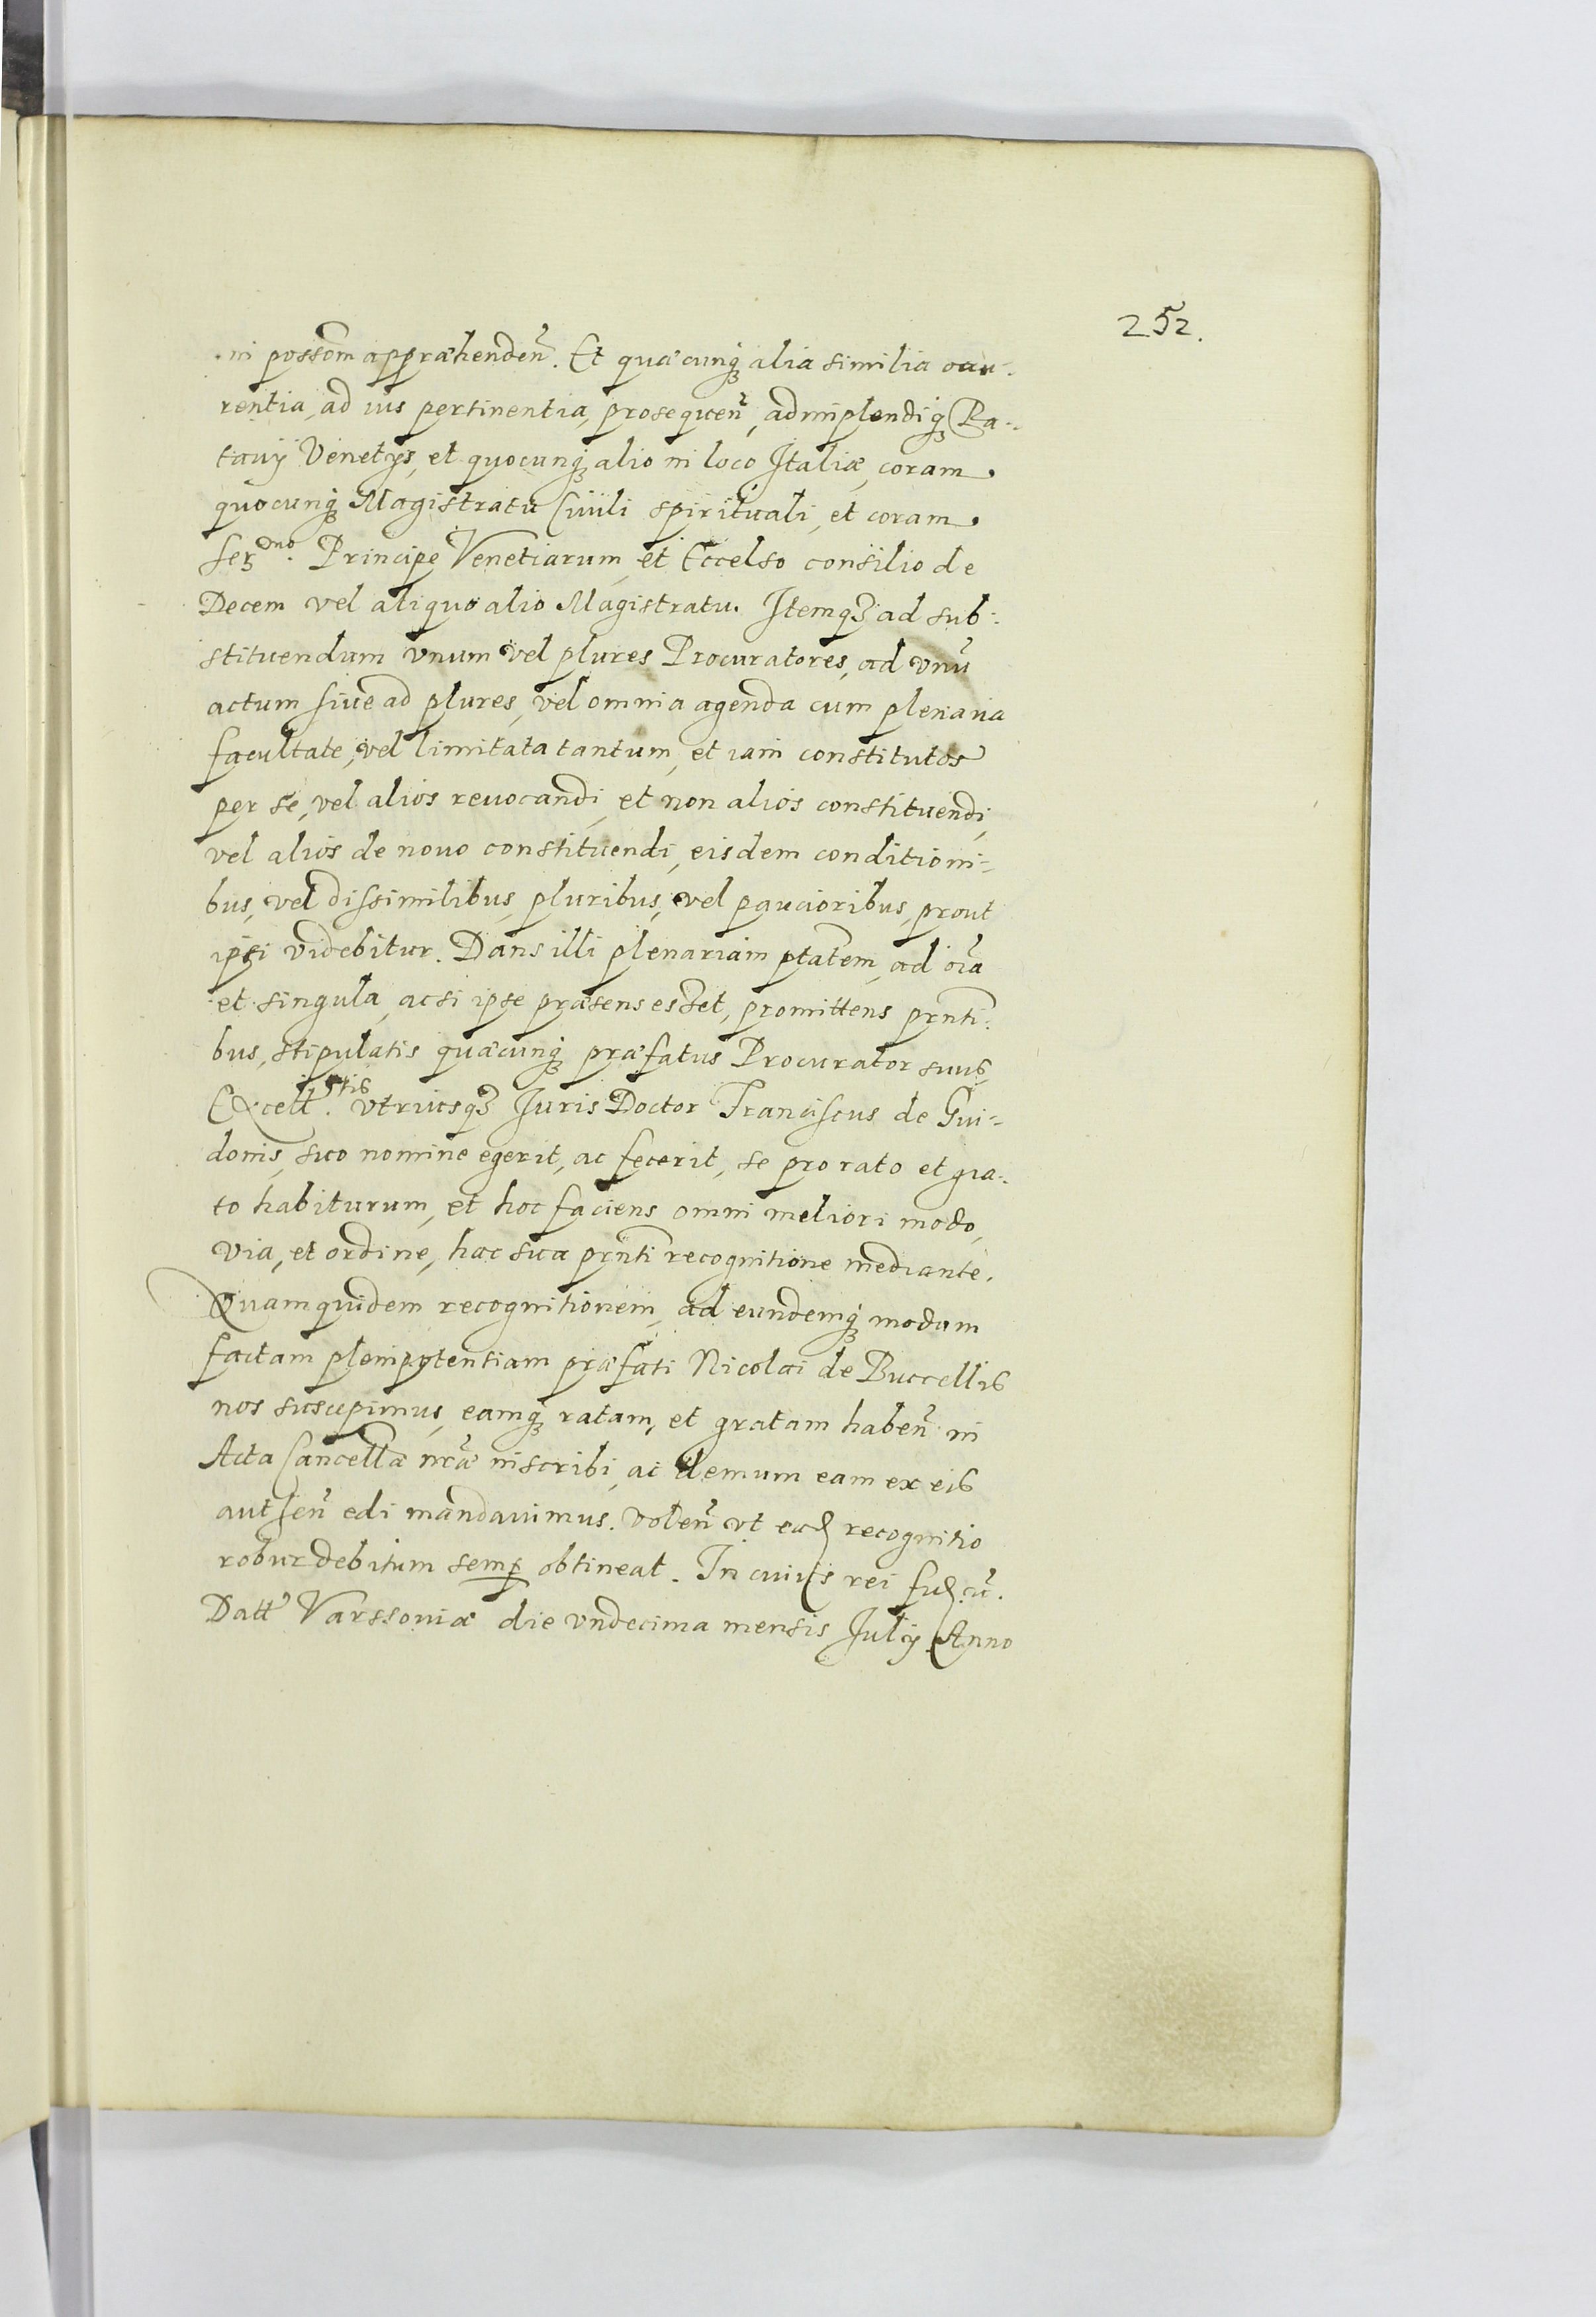 252.
in possom appræhenden̄. Et quæcunq́ꝫ alia similia occu-
rentia, ad ius pertinentia, prosequen̄, adimplendiq́ꝫ Pa-
tauij Venetijs, et quocunq́ꝫ alio in loco Italiæ, coram
quocunq́ꝫ Magistratu Ciuili spirituali, et coram
Ser^mo. Principe Venetiarum, et Eccelso consilio de
Decem vel aliquo alio Magistratu. Itemqꝫ ad sub-
stituendum vnum vel plures Procuratores, ad vnū
actum siue ad plures, vel omnia agenda cum plenaria
facultate, vel limitata tantum, et iam constitutos
per se, vel alios reuocandi, et non alios constituendi,
vel alios de nouo constituendi, eisdem conditioni-
bus, vel dissimilibus, pluribus, vel paucioribus, prout
ipsi videbitur. Dans illi plenariam ptatem, ad oīa
et singula, ac si ipse præsens esset, promittens prnti-
bus, stipulatis quæcunq́ꝫ præfatus Procurator suus,
Excell^tis. vtriusqꝫ Iuris Doctor Franciscus de Gui-
donis, suo nomine egerit, ac fecerit, se pro rato et gra-
to habiturum, et hoc faciens omni meliori modo,
via, et ordine, hac sua prnti recognitione mediante.
Quam quidem recognitionem, ad eundemq́ꝫ modum
factam plenipotentiam præfati Nicolai de Buccellis
nos suscepimus, eamq́ꝫ ratam, et gratam haben̄ in
Acta Cancellæ nr̄æ inscribi, ac demum eam ex eis
autsen̄ edi mandauimus. volen̄ vt ead recognitio
robur debitum semp obtineat. In cuius rei fid. cū.
Datt Varssouiæ die vndecima mensis Iulij Anno